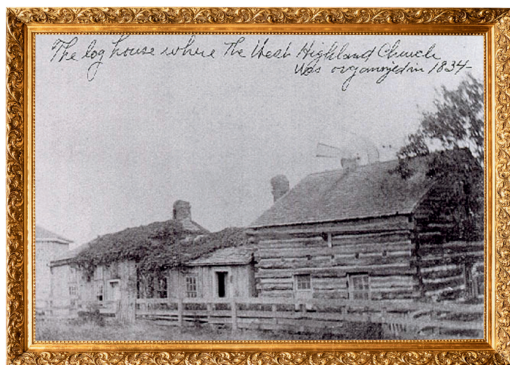 The log house where The West Highland Church
Was organized in 1834